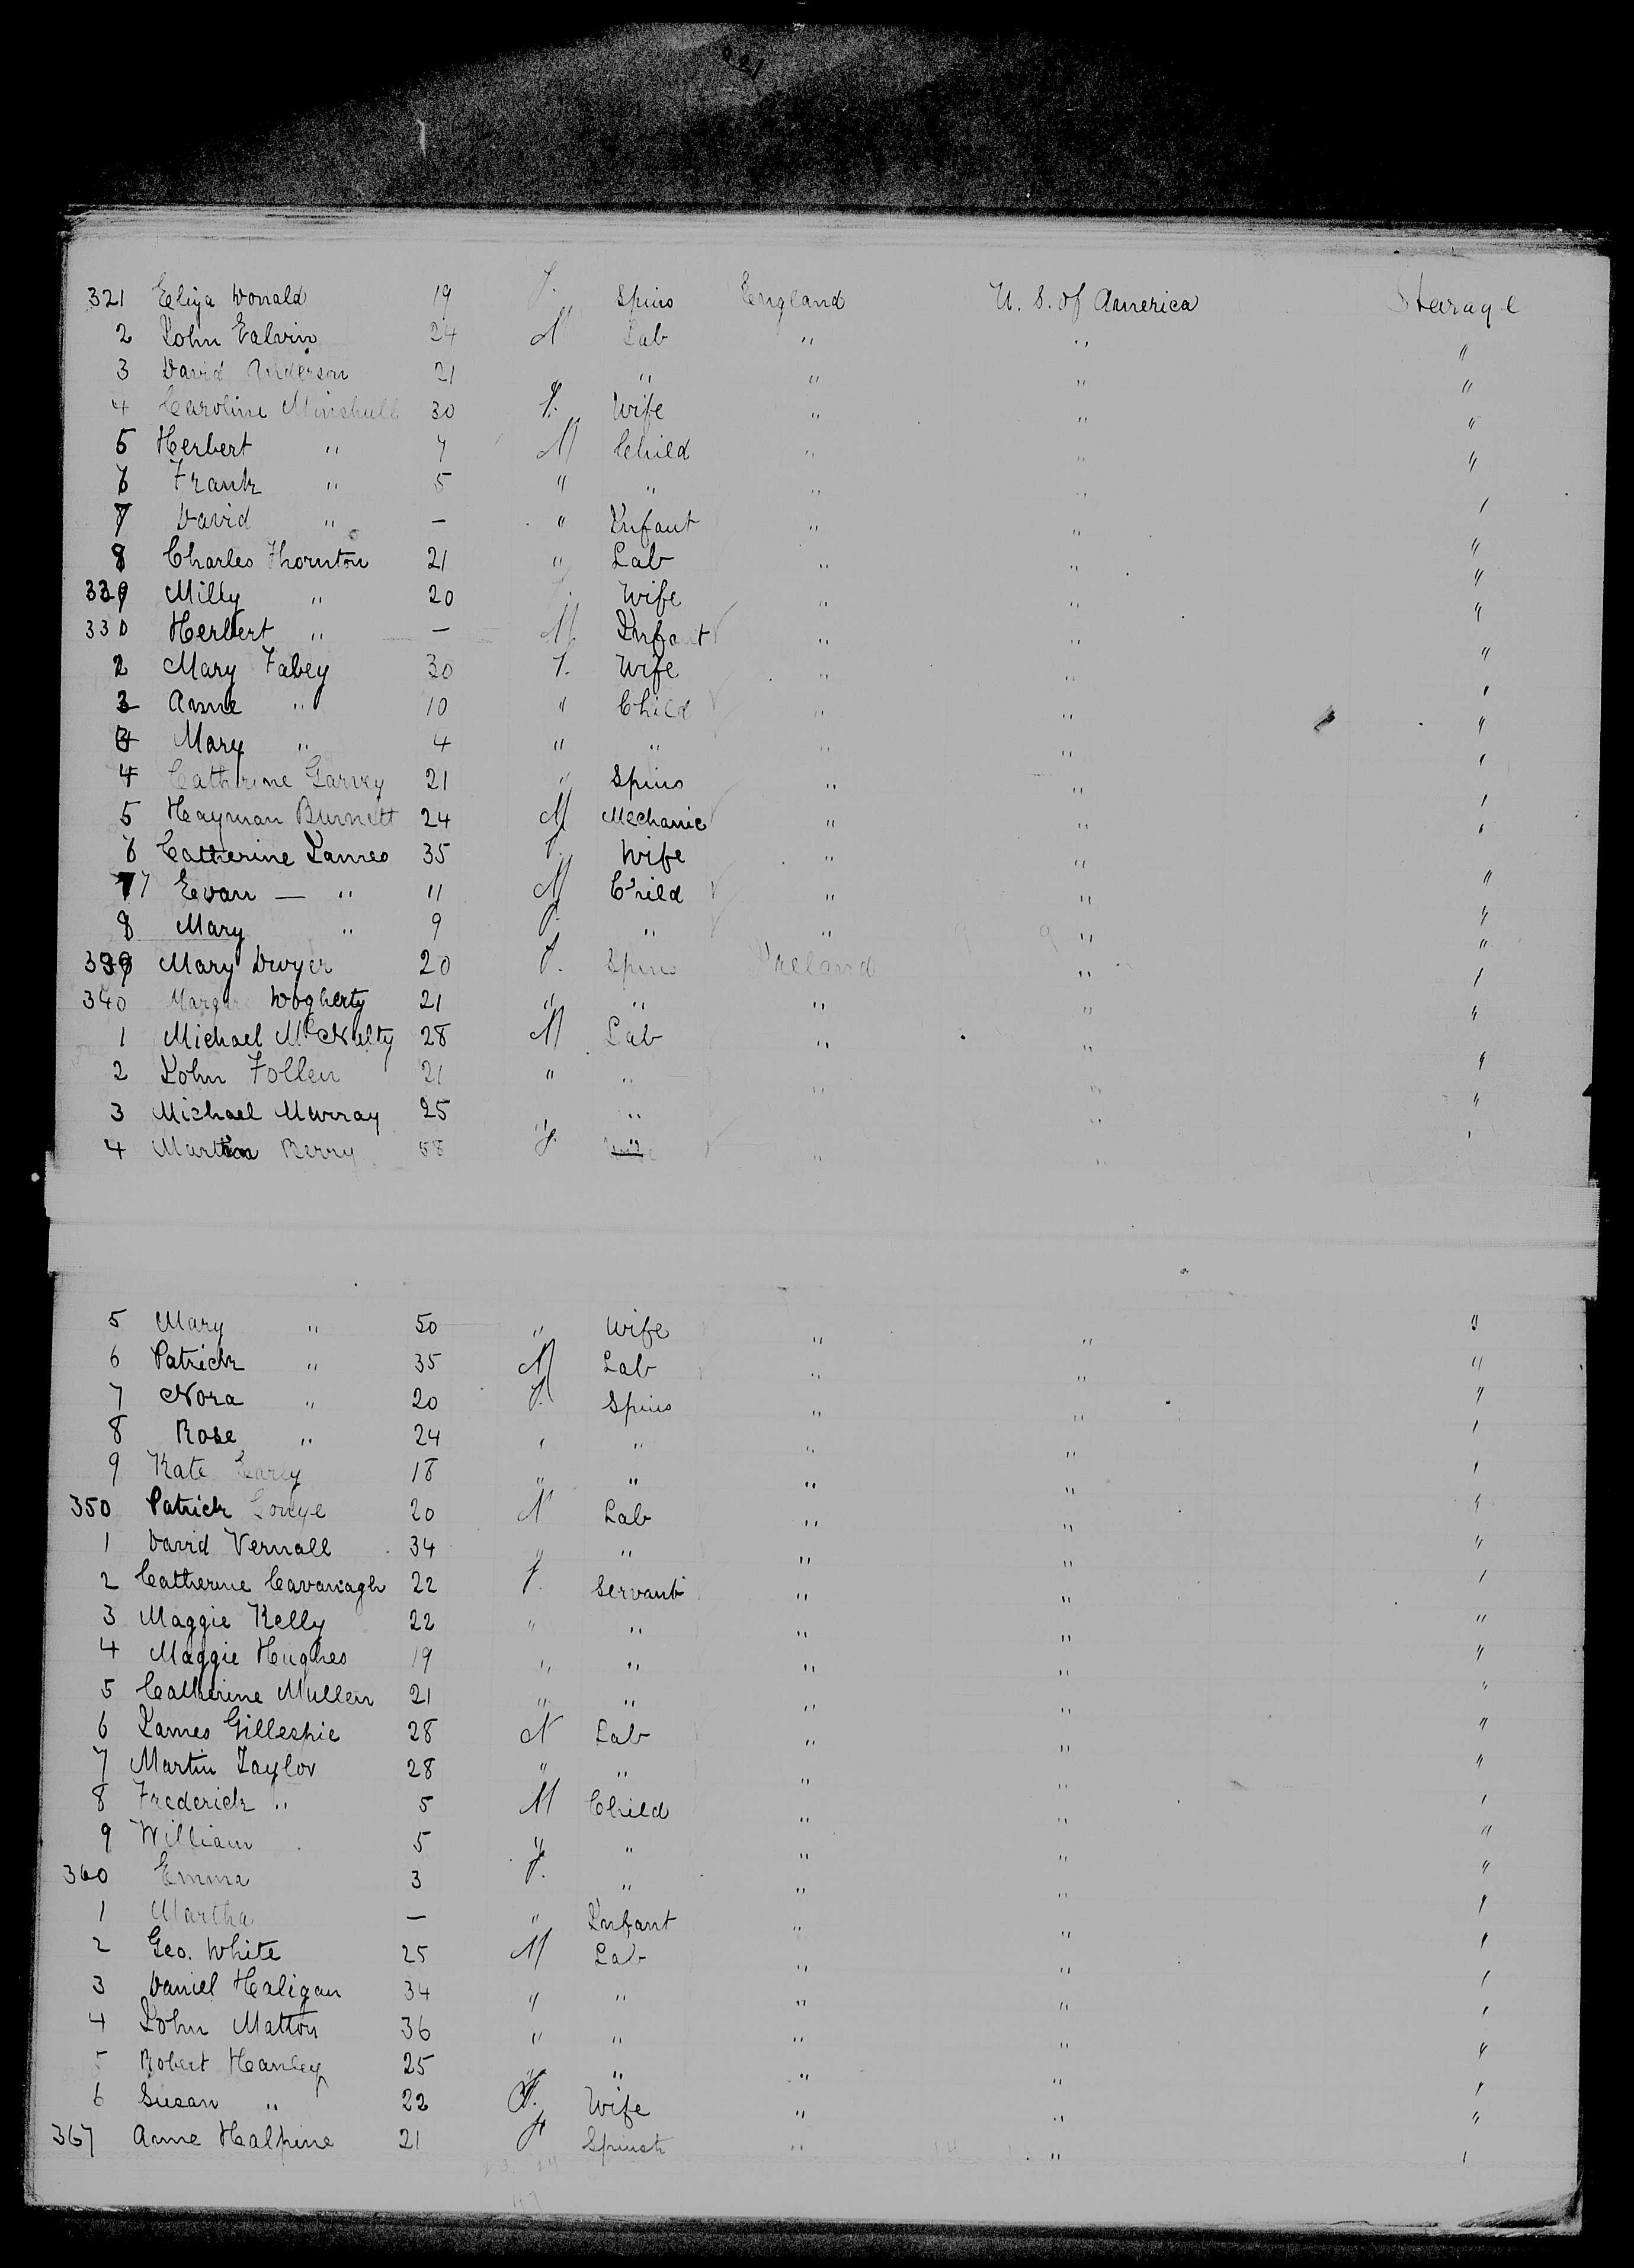 321 Eliza Donald 19 F. Spins England U. S. of America Steerage
2 John Galvin 24 M Lab " " "
3 David Anderson 21 " " " "
4 Caroline Minshull 30 F. Wife " " "
5 Herbert " 7 M Child " " "
6 Frank " 5 " " " " "
7 David " — " Infant " " "
8 Charles Thornton 21 " Lab " " "
339 Milly " 20 Wife " " "
330 Herbert " — M Infant " " "
2 Mary Fahey 30 F. Wife " " "
3 Anne " 10 " Child " " "
Mary " 4 " " " " "
4 Catherine Garvey 21 " Spins " " "
5 Hayman Burnett 24 M Mechanic " " "
6 Catherine James 35 F. Wife " " "
7 Evan — " 11 M Child " " "
8 Mary " 9 F. " " " "
339 Mary Dwyer 20 F. Spins Ireland " "
340 Margaret Dogherty 21 " " " " "
1 Michael McNulty 28 M Lab " " "
2 John Follen 21 " " " " "
3 Michael Murray 25 " " " "
4 Berry 58 F. " " "
5 Mary " 50 " Wife " " "
6 Patrick " 35 M Lab " " "
7 Nora " 20 F. Spins " " "
8 Rose " 24 " " " " "
9 Kate Early 18 " " " " "
350 Patrick 20 M Lab " " "
1 David Vernall 34 " " " " "
2 Catherine Cavanagh 22 F. Servant " " "
3 Maggie Kelly 22 " " " " "
4 Maggie Hughes 19 " " " " "
5 Catherine Mullen 21 " " " " "
6 James Gillespie 28 M Lab " " "
7 Martin Taylor 28 " " " " "
8 Frederick " 5 M Child " " "
9 William 5 " " " " "
360 Emma 3 F. " " " "
1 Martha — " Infant " " "
2 Geo. White 25 M Lab " " "
3 Daniel Haligan 34 " " " " "
4 John Matton 36 " " " " "
5 Robert Hanley 25 " " " " "
6 Susan " 22 F. Wife " " "
367 Anne Halpine 21 F Spinst " " "